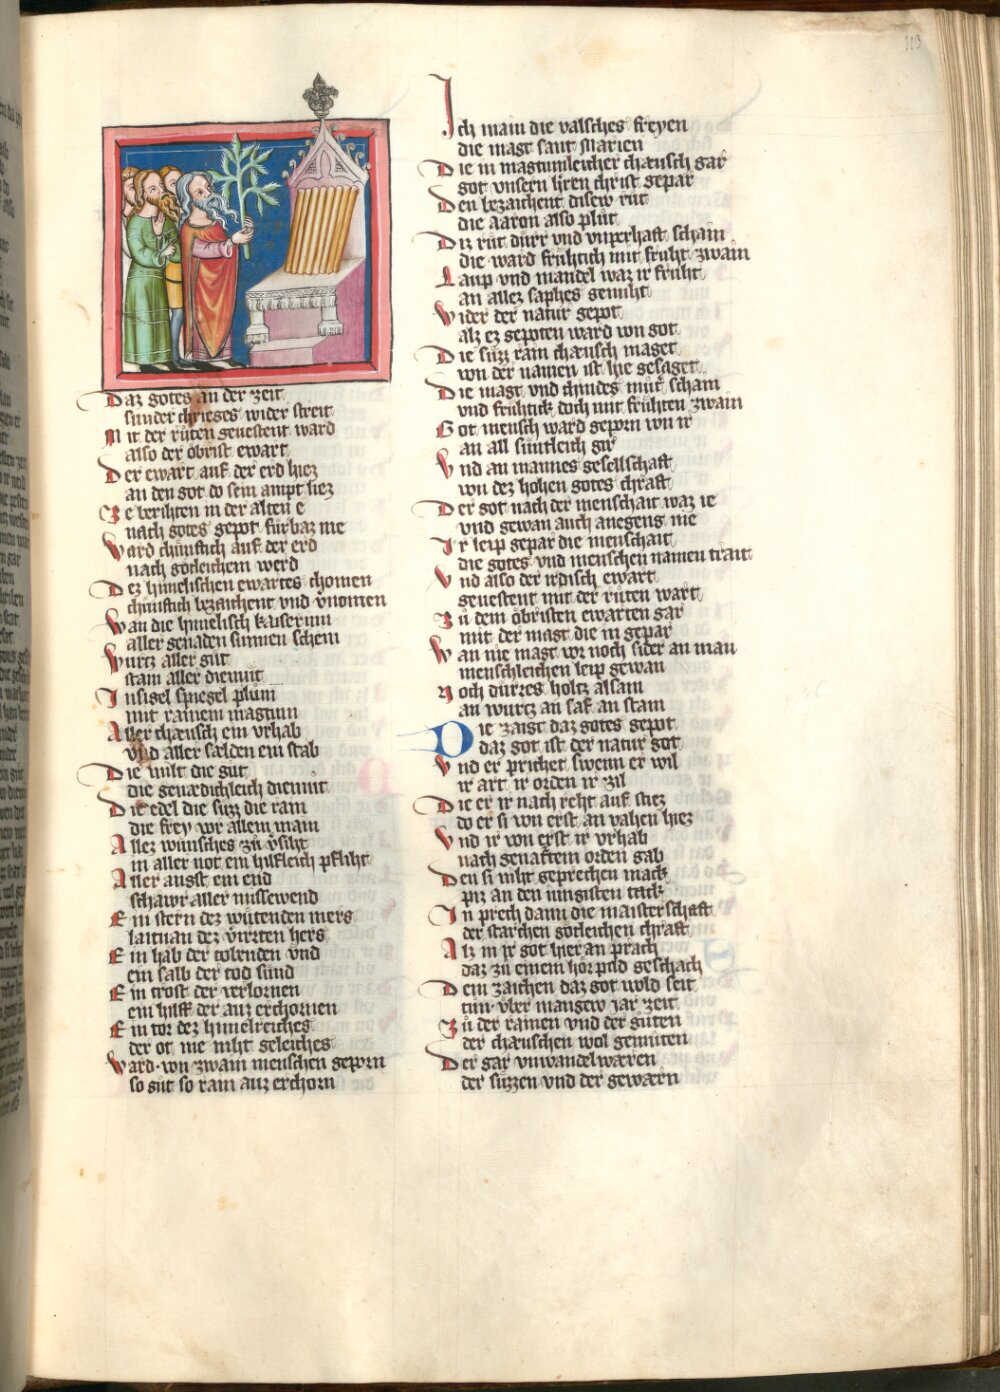 113
Daz gotes an der zeit
sunder chrieges wider streit
Mit der růten gevestent ward
also der öbrist ewart
Der ewart auf der erd hiez
an den got do sein ampt liez
Ze berihten in der alten e
nach gotes gepot fürbaz me
Ward chünftich auf der erd
nach götleichem werd
Dez himelischen ewartes chomen
chünftich bezaichent vnd v̊nomen
Wan die himelisch kaiserinn
aller genaden sinnen schein
Wurtz aller güt
stam aller diemüt
Insigel spiegel plům
mit rainem magtum
Aller chæusch ein vrhab
vnd aller sælden ein stab
Die milt die güt
die genædichleich diemüt
Die edel die süzz die rain
die frey vor allem main
Allez wunsches zů v̊siht
in aller not ein hilfleich pfliht
Aller angst ein end
schawr aller missewend
Ein stern dez wütenden mers
laitman dez virrten hers
Ein hab der tobenden vnd
ein salb der tod sünd
Ein trost der verlornen
ein hilff der auz erchornen
Ein tor dez himelreiches
der ot nie niht geleiches
Ward von zwain menschen geporn
so güt so rain auz erchorn
Ich main die valsches freyen
die magt sant Marien
Die in magtumleicher chæusch gar
got vnsern herren christ gepar
Den bezaichent disew růt
die aaron also plůt
Diz růt dürr vnd vnperhaft scham
die ward frühtich mit fruht zwain
Laup vnd mandel waz ir fruht
an allez saphes genuht
Wider der natur gepot
alz ez gepoten ward von got
Die süzz rain chæusch maget
von der namen ist hie gesaget
Die magt vnd chindes můt scham
vnd frühtick doch mit frühten zwain
Got mensch ward geporn von ir
an all süntleich gir
Vnd an mannes gesellschaft
von dez hohen gotes chraft
Der got nach der menschait waz ie
vnd gewan auch anegeng nie
Ir leip gepar die menschait
die gotes vnd menschen namen trait
Vnd also der irdisch ewart
gevestent mit der růten wart
Zů dem öbristen ewarten gar
mit der magt die in gepar
Wan nie magt vor noch sider an man
menschleichen leip gewan
Noch dürres holtz alsam
an wurtz an saf an stam
Die zaigt daz gotes gepot
daz got ist der natur got
Vnd er prichet swenn er wil
ir art ir orden ir zil
Die er ir nach reht auf stiez
do er si von erst an vahen hiez
Vnd ir von erst ir vrhab
nach genantem orden gab
Den si niht geprechen mach
piz an den iungisten tach
In prech dann die maisterschaft
der starchen götleichen chraft
Alz in ir got hier an prach
daz zů einem hör pild geschach
Dem zaichen daz got wold seit
tůn vber mangew iar zeit
Zů der rainen vnd der güten
der chæuschen wol gemůten
Der gar vnwandelwæren
der süzzen vnd der gewærn